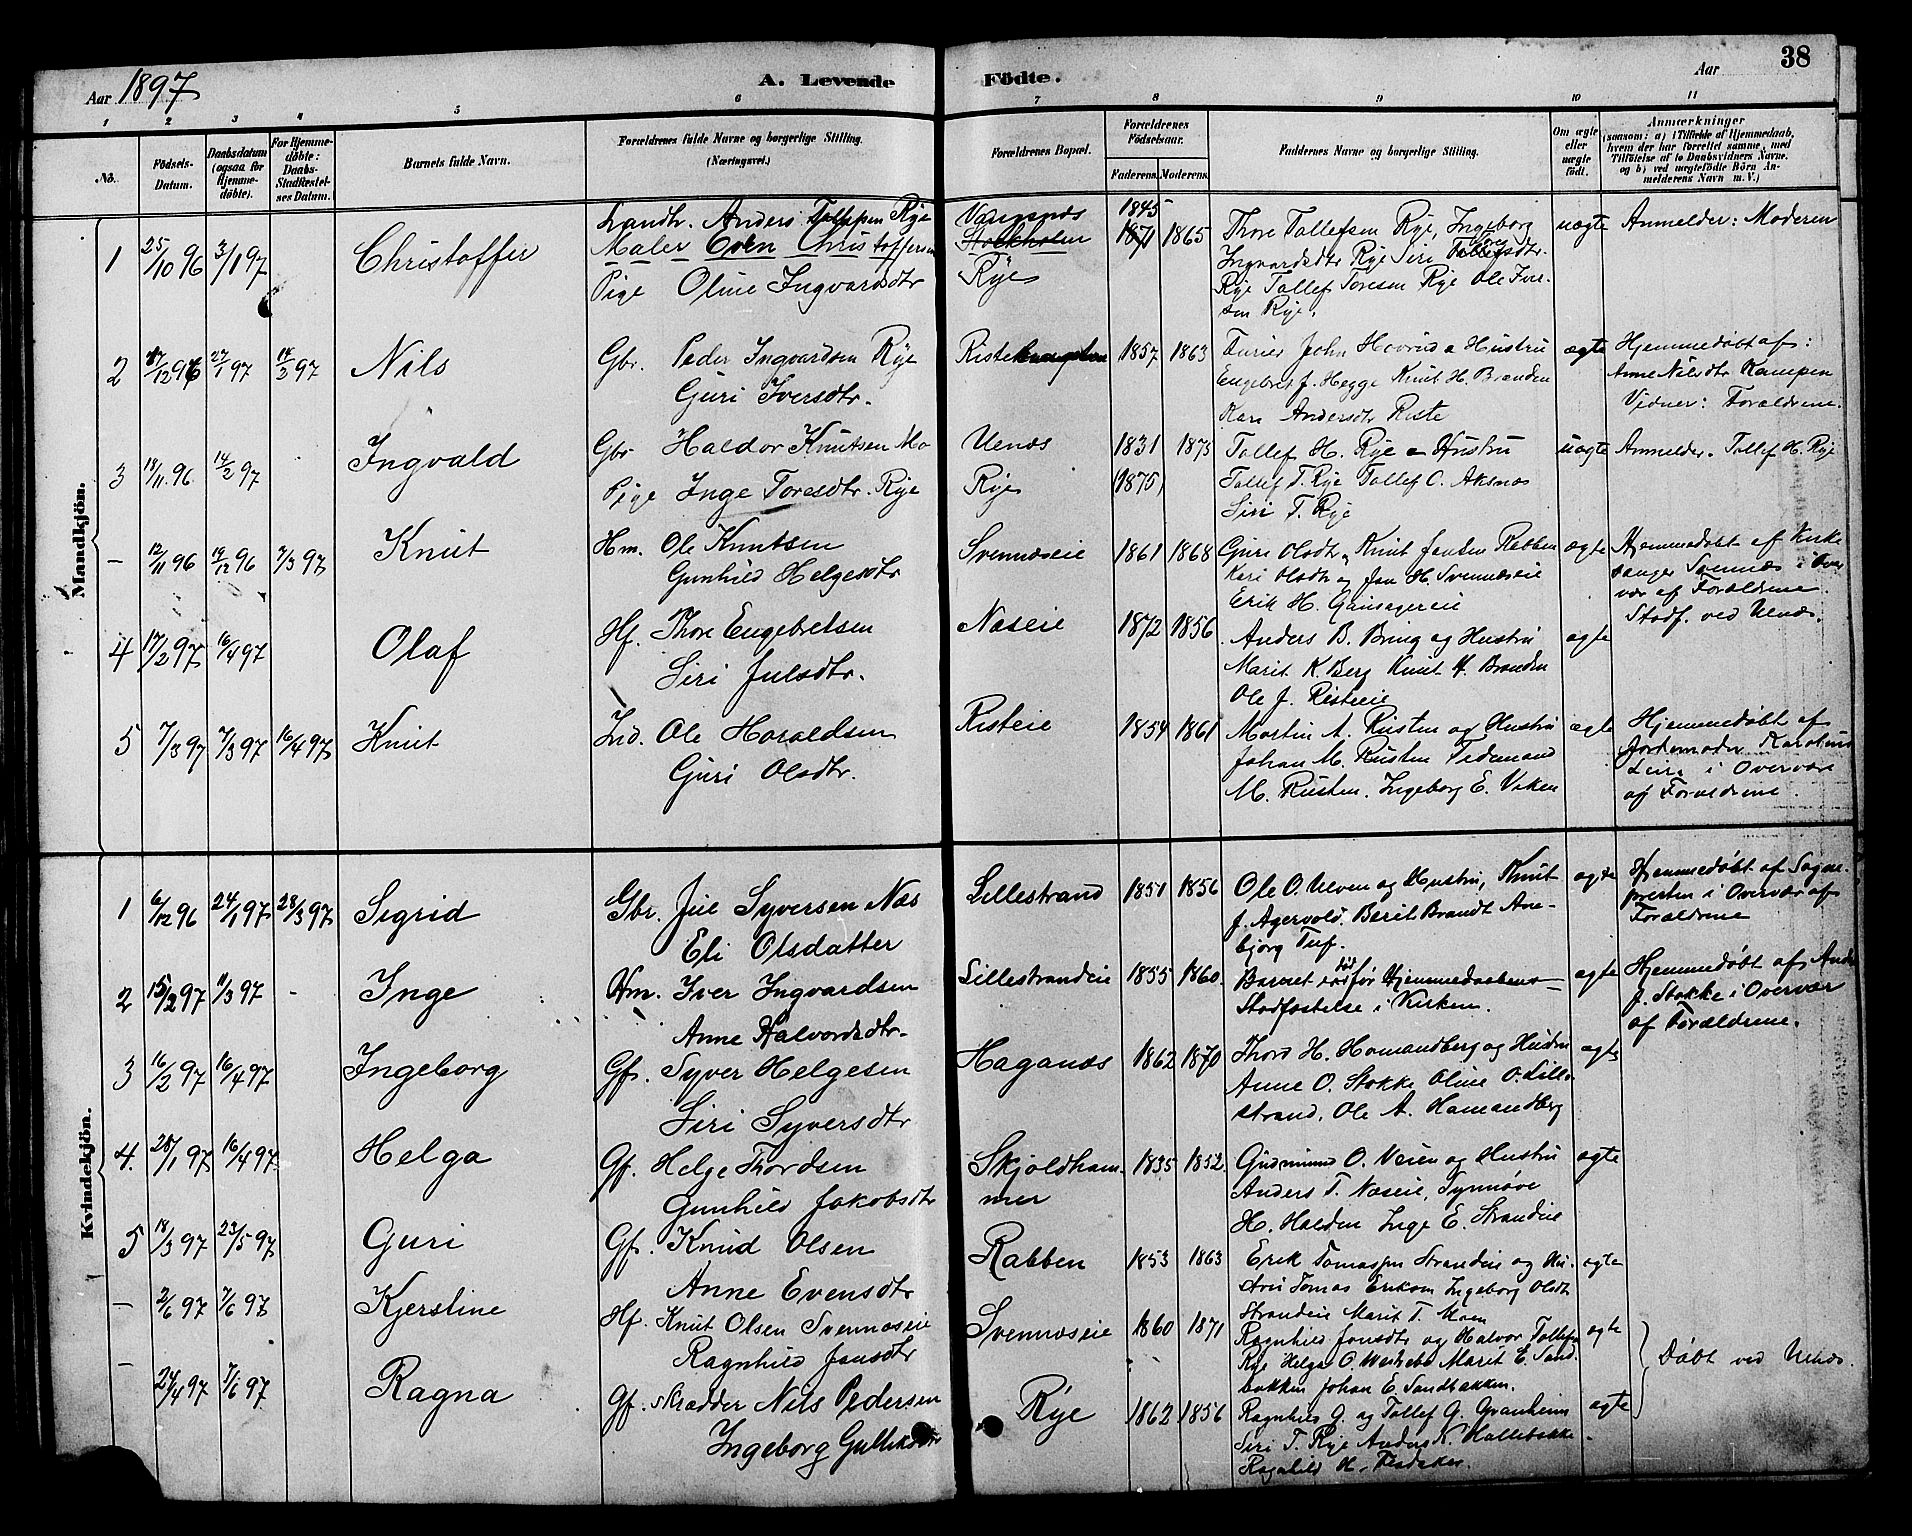 Aar 1897 A. Levende Födte. Aar 38
1 2 3 4 5 6 7 8 9 10 11
No. Födsels-Datum. Daabsdatum (ogsaa for Hjemmedöbte). For Hjemmedöbte: Daabs-Stadfæstelses Datum. Barnets fulde Navn. Forældrenes fulde Navne og borgerlige Stilling. (Næringsvei.) Forældrenes Bopæl. Forældrenes Födselsaar. Faderens. Moderens. Faddernes Navne og borgerlige Stilling. Om ægte eller uægte födt. Anmærkninger (saasom: a) i Tilfælde af Hjemmedaab, hvem der har forrettet samme, med Tilföielse af to Daabsvidners Navne. og b) ved uægtefödte Börn Anmelderens Navn m. V.)
Mandkjön.
1 25/10 96 3/1 97 Christoffer
Landh. Anders Rye
Maler Even Christoffersen
Pige Oline Ingvardsdtr
Stockholm
Rye
1845
1871 1865
Thore Tollefsen Rye, Ingeborg
Ingvardsdtr Rye Siri
Rye Tollef Toresen Rye Ole Iver-
sen Rye.
uægte
Anmelder: Moderen
2 17/12 96 27/1 97 14/2 97 Nils
Gbr. Peder Ingvardsen Rye
Guri Iversdtr.
1857 1863
Furier John Hovrud & Hustru
Engebret J. Hegge Knut H. Branden
Kari Andersdtr Riste
ægte
Hjemmedøbt af:
Anne Nilsdtr Kampen
Vidner: Forældrene.
3 18/11 96 14/2 97 Ingvald
Gbr Haldor Knutsen Mo
Pige Inge Toresdtr. Rye
Ulnæs
Rye
1831 1875
(1875)
Tollef H. Rye & Hustru
Tollef T. Rye Tollef O. Aksnæs
Siri T. Rye
uægte
Anmelder. Tollef H. Rye
— 12/11 96 19/12 96 7/3 97 Knut
Hm. Ole Knutsen
Gunhild Helgesdtr
Svennæseie
1861 1868
Guri Olsdtr Knut Jensen Rabben
Kari Olsdtr og Jan H. Svennæseie
Erik H. Gaasagereie
ægte
Hjemmedøbt af Kirke
sanger Svennæs i Over
vær af Forældrene.
Stadf. ved Ulnæs.
4 17/2 97 16/4 97 Olaf
Hf. Thore Engebretsen
Siri Julsdtr.
Næseie
1872 1856
Anders B. Bring og Hustru
Marit K. Berg Knut H. Branden
Ole J. Risteeie
ægte
5 7/3 97 7/3 97 16/4 97 Knut
Ind. Ole Haraldsen
Guri Olsdtr.
Risteie
1854 1861
Martin A. Rusten og Hustru
Johan M. Rusten Tidemand
M. Rusten. Ingeborg E. Viken
ægte
Hjemmedøbt af
Jordemoder
i Overvær
af Forældrene.
Kvindekjön.
1 6/12 96 24/1 97 28/3 97 Sigrid
Gbr. Jul Syversen Næs
Eli Olsdatter
Lillestrand
1851 1856
Ole O. Ulven og Hustru, Knut
J. Agervold. Berit Brandt Ane-
bjørg Tuf.
ægte
Hjemmedøbt af Sogne-
presten i Overvær af
Forældrene
2 15/2 97 11/3 97 - Inge
Hm. Iver Ingvardsen
Anne Halvordsdtr.
Lillestrandeie
1855 1860.
Barnet død før Hjemmedaabens
Stadfæstelse i Kirken.
ægte
Hjemmedøbt af
J. Stokke i Overvær
af Forældrene.
3 16/2 97 16/4 97 Ingeborg
Gf. Syver Helgesen
Siri Syversdtr
Haganæs
1862 1870
Thord H. Hamandberg og Hustru
Anne O. Stokke Oline O. Lille-
strand. Ole A. Hamandberg
ægte
4. 28/1 97 16/4 97 Helga
Gf. Helge Thordsen
Gunhild Jakobsdtr
Skjoldham-
mer
1835 1852
Gudmund O. Veien og Hustru
Anders T. Næseie, Synnøve
H. Halden Inge E. Strandeie
ægte
5 18/3 97 23/5 97 Guri
Gf. Knud Olsen
Anne Evensdtr
Rabben
1853 1863
Erik Tomassen Strandeie og Hu-
stru Tomas Eriksen Ingeborg Olsdtr
Strandeie Marit T. Moen
ægte
— 2/6 97 7/6 97 Kjerstine
Hf. Knut Olsen Svennæseie
Ragnhild Jansdtr
Svennæseie
1860 1871
Ragnhild Jansdtr og Halvor Tollefsen
Rye Helge O. Marit E. Sand-
bakken Johan E. Sandbakken.
ægte
Døbt ved Ulnæs.
— 24/4 97 7/6 97 Ragna
Gf. Skrædder Nils Pedersen
Ingeborg Gulliksdtr
Rye
1862 1856
Ragnhild G. og Tollef G. Granheim
Siri T. Rye Anders K. Hallebakke.
Ragnhild H.
ægte